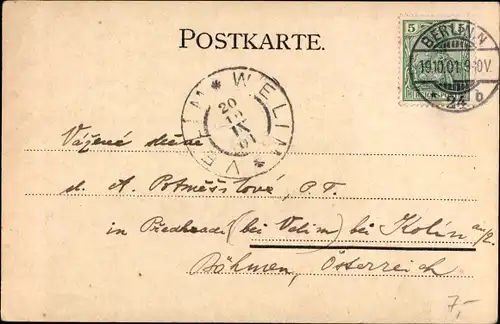 POSTKARTE.
5
BERLIN N
19.10.01. 9-10V.
* 24 b
* WELIM *
VELIM
20
IX
01
Vážené slečně
sl. A. Potměšilové, P. T.
in Předhradí (bei Velim) bei Kolín a/E.
Böhmen, Österreich
7,-